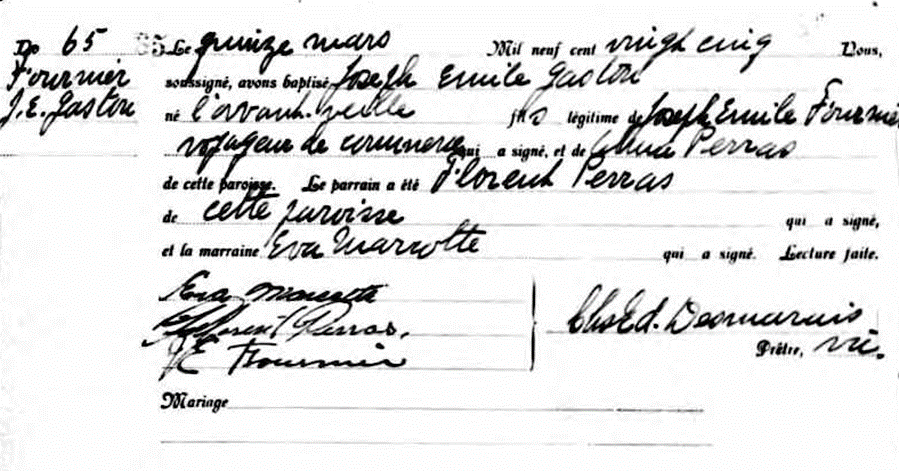 Bp 65
Fournier
J.E. Gaston
Le quinze mars Mil neuf cent vingt cinq Nous,
soussigné, avons baptisé Joseph Emile Gaston
né l'avant-veille fils légitime de Joseph Emile Fournier
voyageur de commerce qui a signé, et de Perras
de cette paroisse. Le parrain a été Florent Perras
de cette paroisse qui a signé,
et la marraine Eva Marcotte qui a signé. Lecture faite.
Eva Marcotte
Florent Perras.
J E Fournier
Chs Ed. Desmarais
Prêtre, vic.
Mariage